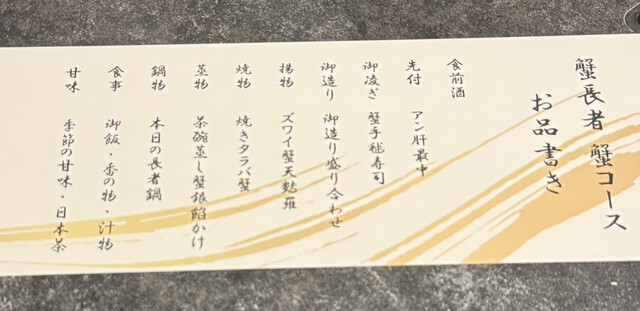 蟹長者 蟹コース
お品書き
食前酒
先付 アン肝最中
御凌ぎ 蟹手毬寿司
御造り 御造り盛り合わせ
揚物 ズワイ蟹天麩羅
焼物 焼きタラバ蟹
蒸物 茶碗蒸し蟹銀餡かけ
鍋物 本日の長者鍋
食事 御飯・香の物・汁物
甘味 季節の甘味・日本茶